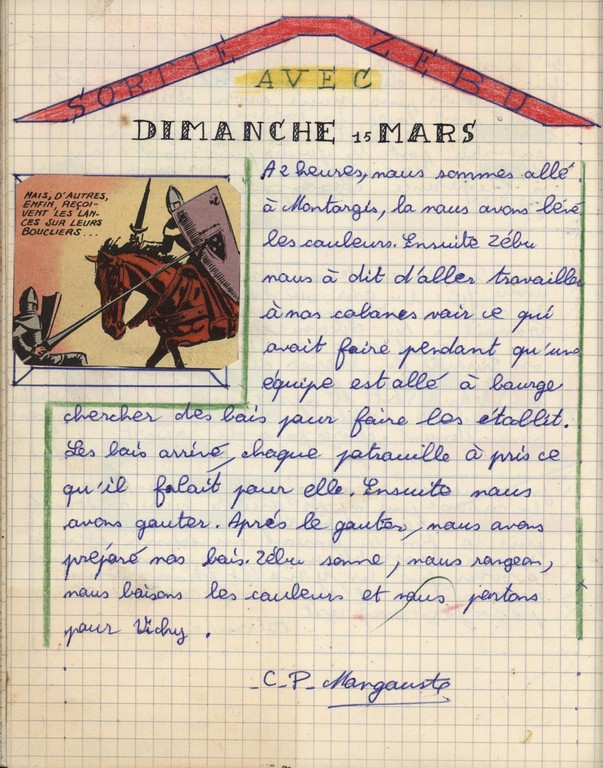 SORTIE ZEBU
AVEC
DIMANCHE 15 MARS
MAIS, D'AUTRES,
ENFIN, REÇOI-
VENT LES LAN-
CES SUR LEURS
BOUCLIERS...
A 2 heures, nous sommes allé
à Montargis, la nous avons levé
les couleurs. Ensuite Zébu
nous à dit d'aller travailler
à nos cabanes voir ce qui
avait faire pendant qu'une
équipe est allé à bourge
chercher des bois pour faire les établit.
Les bois arrivé, chaque patrouille à pris ce
qu'il falait pour elle. Ensuite nous
avons gouter. Aprés le gouter, nous avons
préparé nos bois. Zébu sonne, nous rangeon,
nous baisons les couleurs et nous partons
pour Vichy.
_C_P_ Mangouste